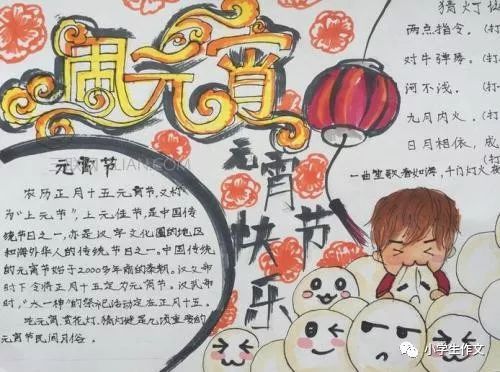 闹元宵
元宵节
农历正月十五元宵节,又称
为"上元节",上元佳节,是中国传
统节日之一,亦是汉字文化圈的地区
和海外华人的传统节日之一。中国传统
的元宵节始于2000多年前的秦朝。汉文帝
时下令将正月十五定为元宵节。汉武帝
时,"太一神"的祭祀活动定在正月十五。
吃元宵、赏花灯、猜灯谜是几项重要的
元宵节民间习俗。
元宵节快乐
猜灯
两点指令。(打
对牛弹琴。(打
河不浅。(打
九月内火。(打
日月相依,成
一曲笙歌春如海,千门灯火夜
小学生作文